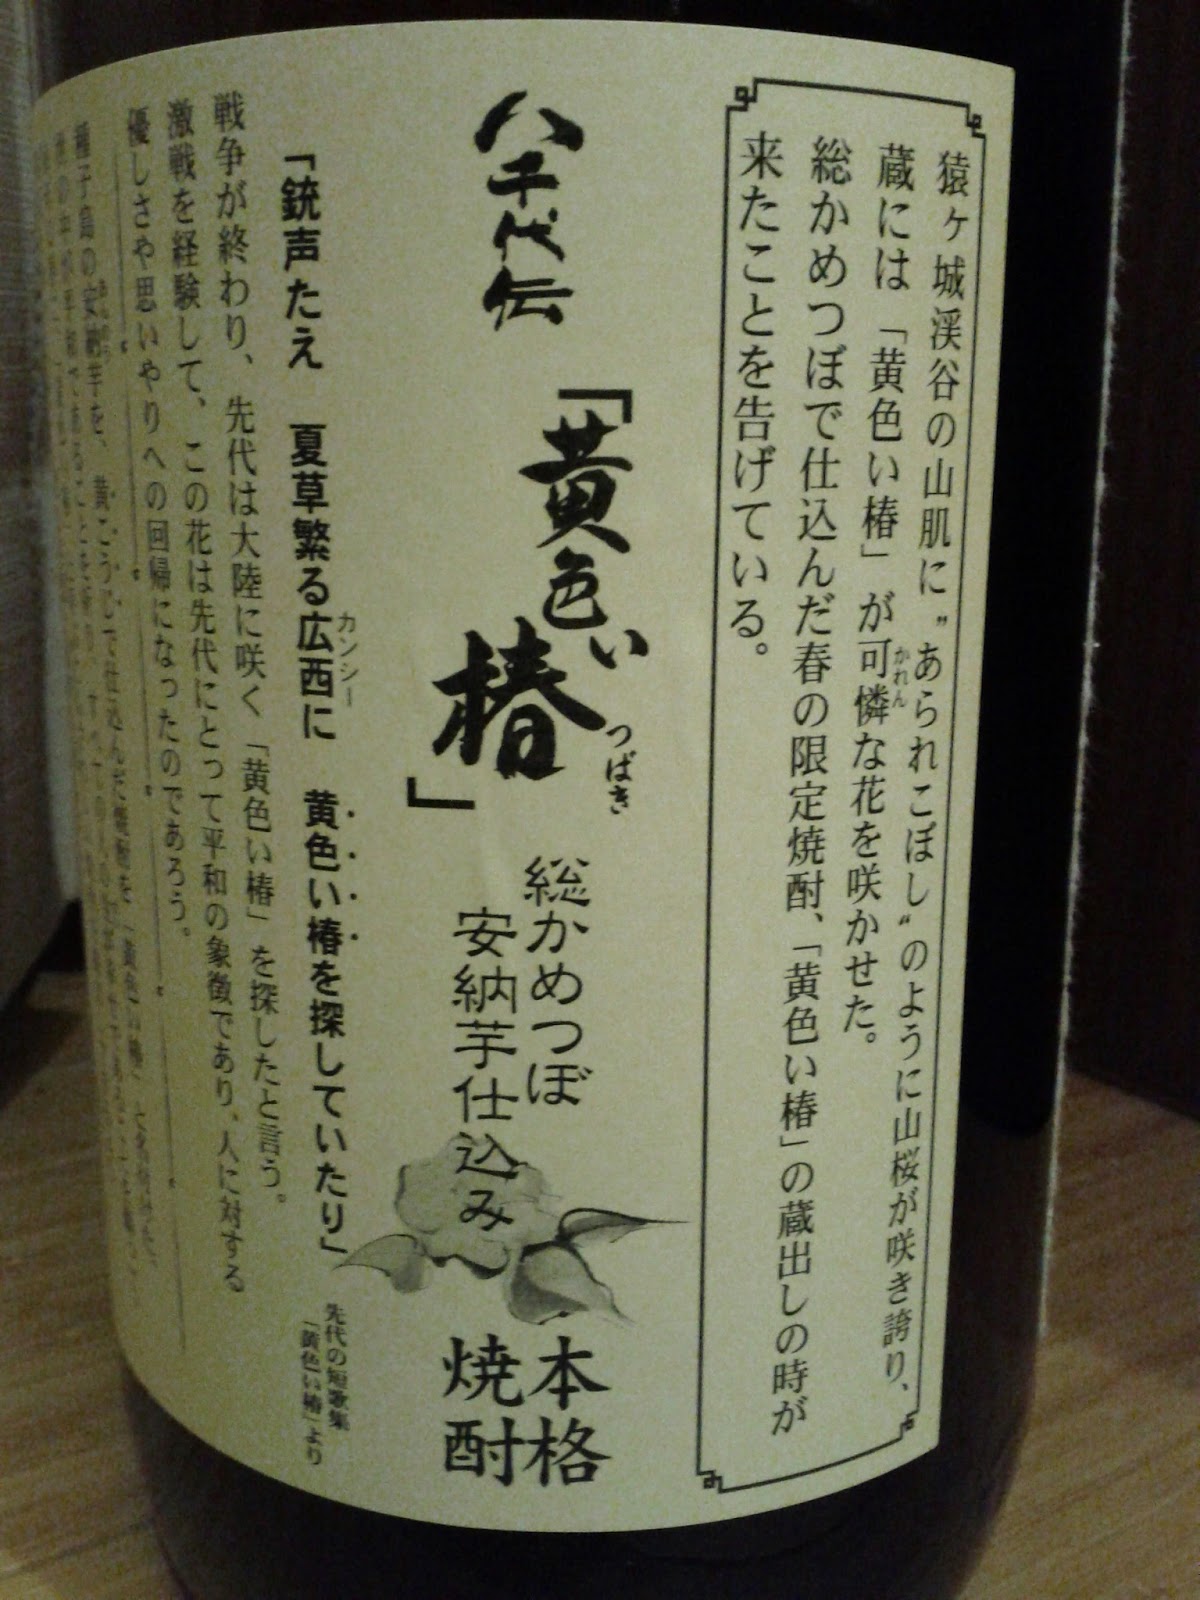 猿ヶ城渓谷の山肌に〝あられこぼし〟のように山桜が咲き誇り、
蔵には「黄色い椿」が可憐な花を咲かせた。
かれん
総かめつぼで仕込んだ春の限定焼酎、「黄色い椿」の蔵出しの時が
来たことを告げている。
八千代伝
「黄色い椿」
つばき
総かめつぼ
安納芋仕込み
本格
焼酎
「銃声たえ 夏草繁る広西に 黄色い椿を探していたり」
カンシー
先代の短歌集
「黄色い椿」より
戦争が終わり、先代は大陸に咲く「黄色い椿」を探したと言う。
激戦を経験して、この花は先代にとって平和の象徴であり、人に対する
優しさや思いやりへの回帰になったのであろう。
種子島の安納芋を、黄こうじで仕込んだ焼酎を「黄色い椿」と